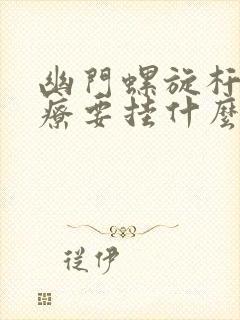 幽門螺旋杆
療要挂什麼
從伊